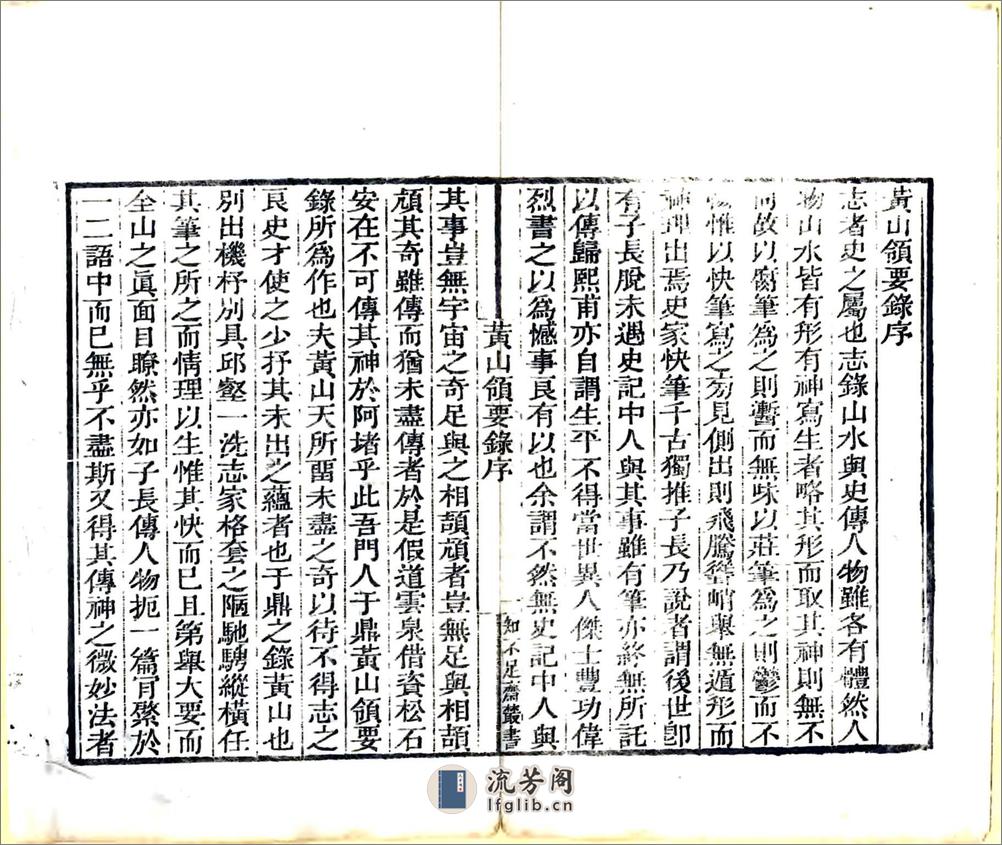 黃山領要錄序
志者史之屬也志錄山水與史傳人物雖各有體然人
物山水皆有形有神寫生者略其形而取其神則無不
同故以腐筆爲之則蹔而無味以莊筆爲之則鬱而不
惟以快筆寫之旁見側出則飛騰聳峭舉無遁形而
神理出焉史家快筆千古獨推子長乃說者謂後世卽
有子長脫未遇史記中人與其事雖有筆亦終無所託
以傳歸熙甫亦自謂生平不得當世異人傑士豐功偉
烈書之以爲憾事良有以也余謂不然無史記中人與
黃山領要錄序
一
知不足齋叢書
其事豈無宇宙之奇足與之相頡頏者豈無足與相頡
頏其奇雖傳而猶未盡傳者於是假道雲泉借資松石
安在不可傳其神於阿堵乎此吾門人于鼎黃山領要
錄所爲作也夫黃山天所畱未盡之奇以待不得志之
良史才使之少抒其未出之蘊者也于鼎之錄黃山也
別出機杼別具邱壑一洗志家格套之陋馳騁縱橫任
其筆之所之而情理以生惟其快而已且第舉大要而
全山之眞面目瞭然亦如子長傳人物扼一篇肯綮於
一二語中而已無乎不盡斯又得其傳神之微妙法者
流芳阁
lfglib.cn